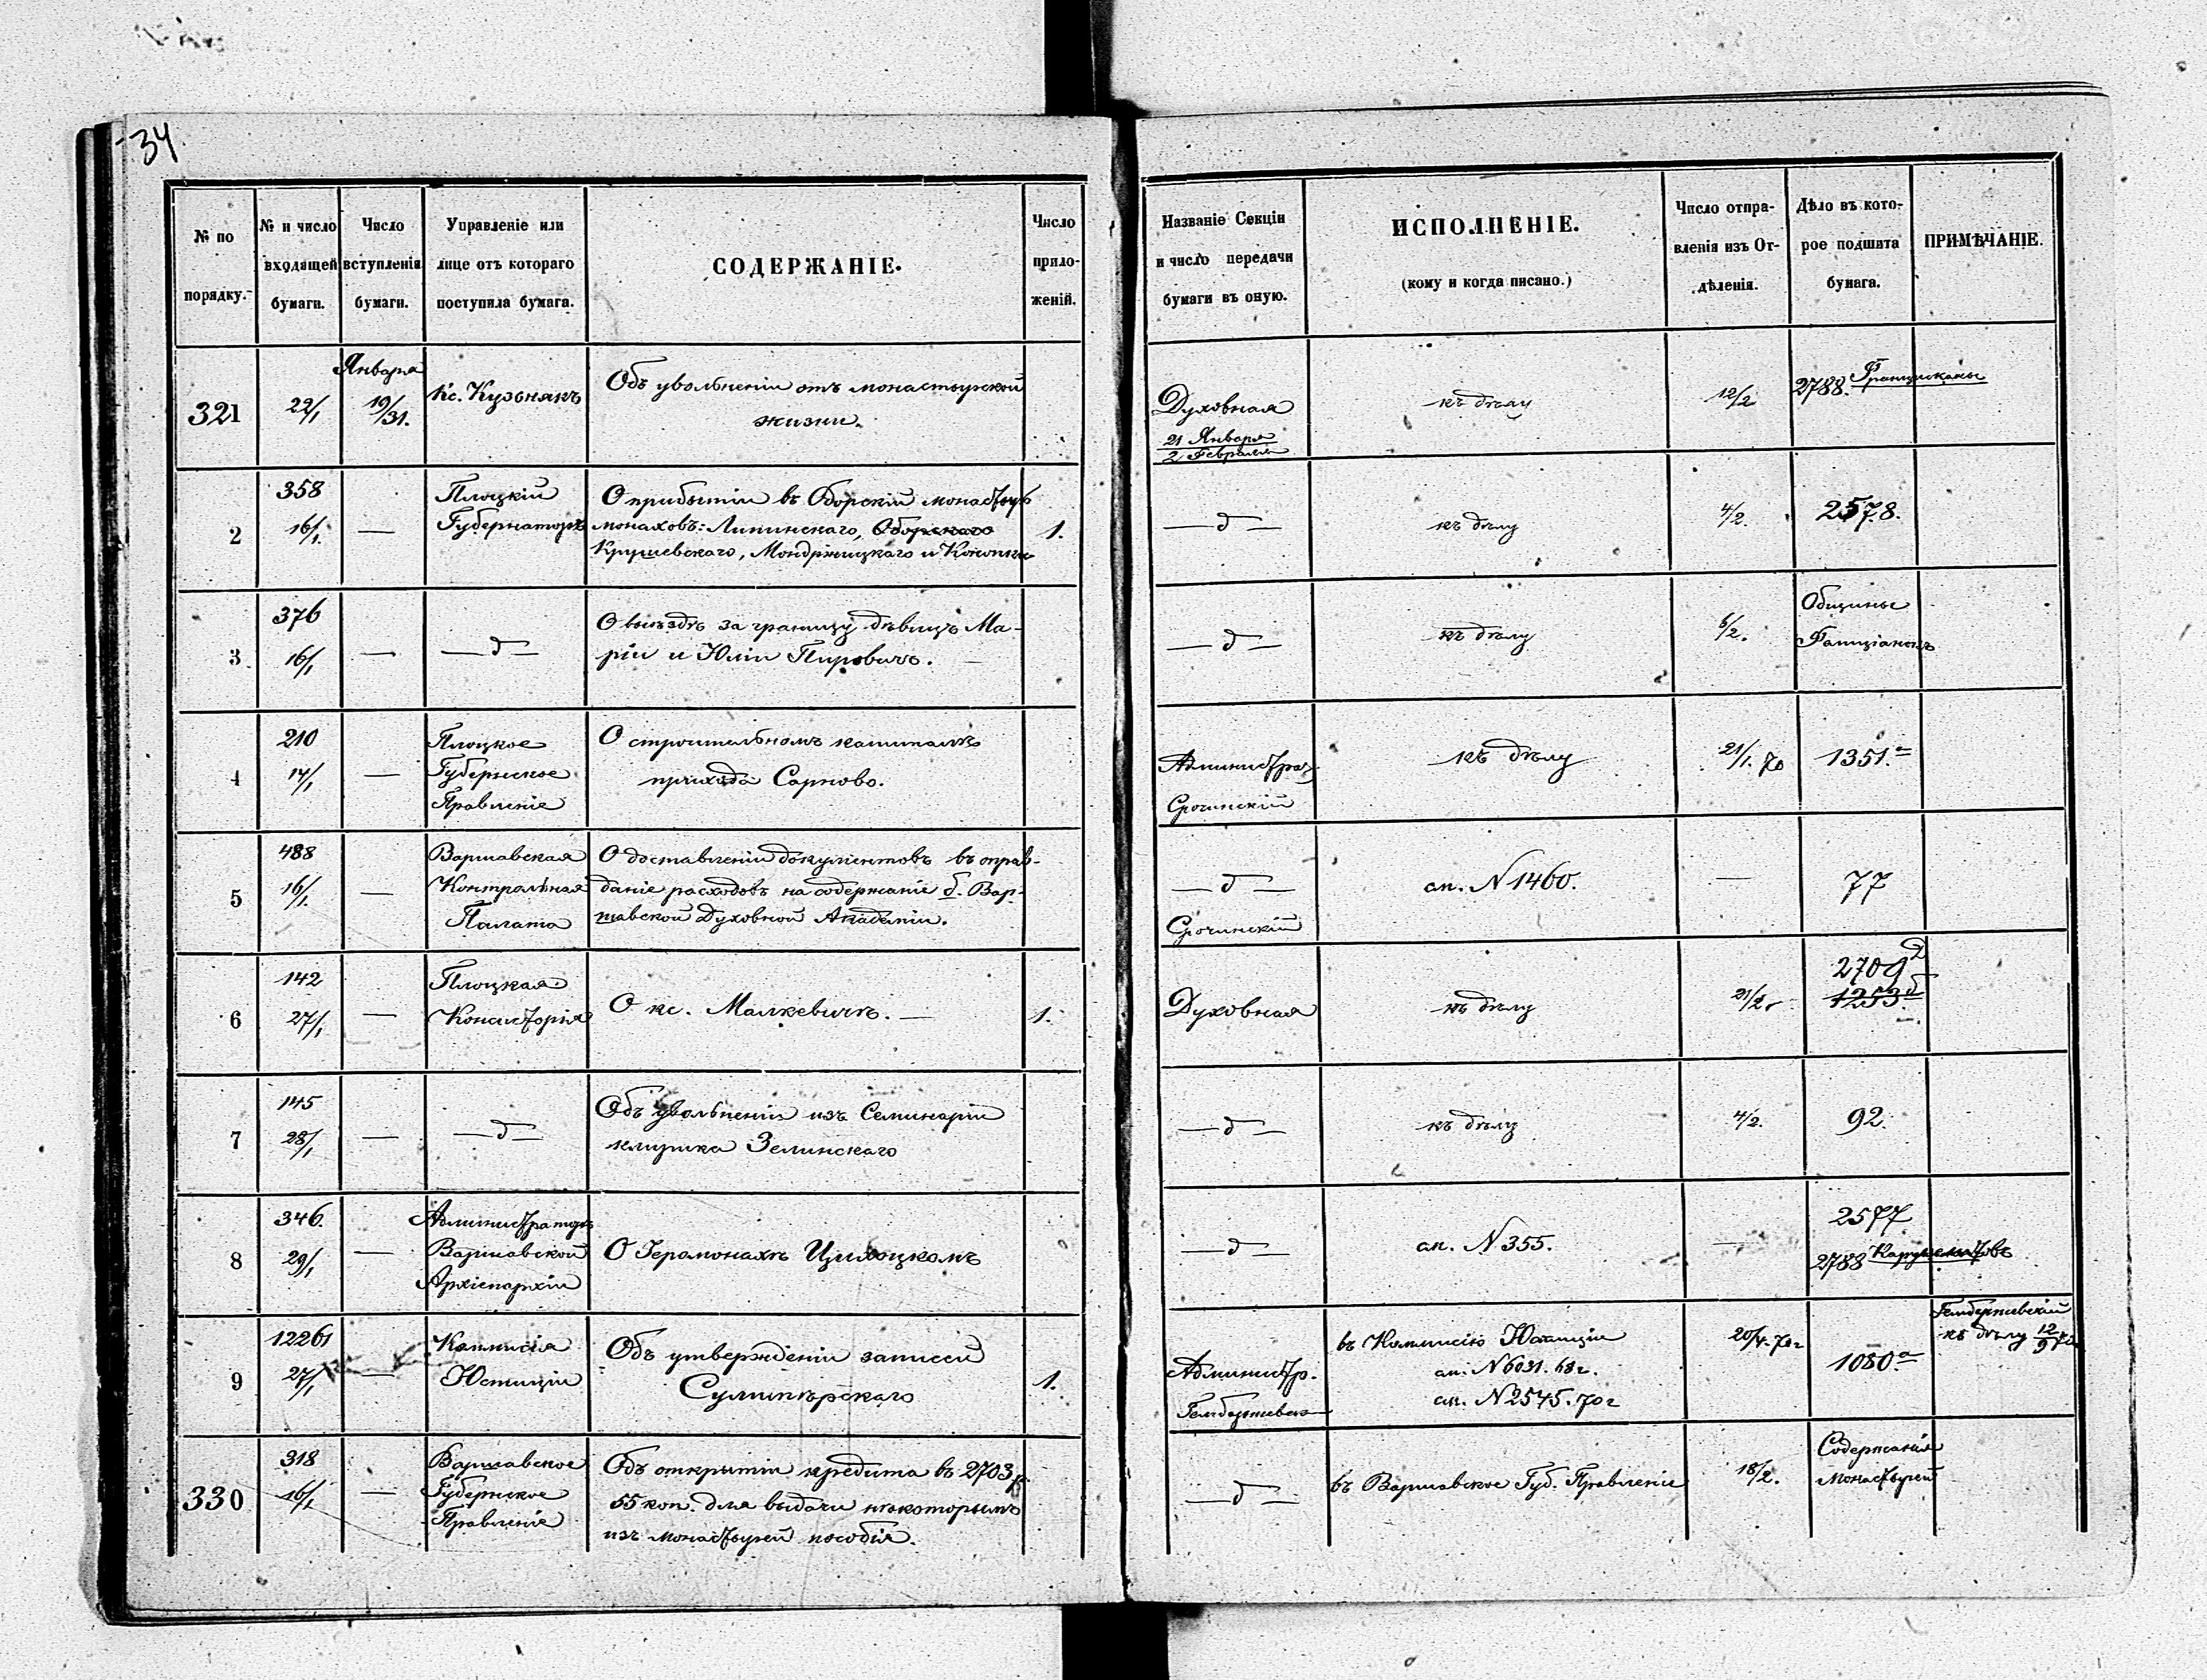 34.
№ по порядку.
№ и число входящей бумаги.
Число вступленія бумаги.
Управленіе или лице отъ котораго поступила бумага.
СОДЕРЖАНІЕ.
Число приложеній.
Названіе Секціи и число передачи бумаги въ оную.
ИСПОЛНЕНІЕ.
(кому и когда писано.)
Число отправленія изъ Отдѣленія.
Дѣло въ которое подшита бумага.
ПРИМѢЧАНІЕ.
321
22/1
Января
19/31.
Кс. Кузьнякъ
Объ увольненіи отъ монастырской
жизни.
Духовная
21 Января
2 Февраля
къ дѣлу
12/2
2788. Францискане
2
358
16/1.
—
Плоцкій
Губернаторъ
О прибытіи въ Оборскій монастырь
монаховъ: Липинскаго, Оборскаго
Крушевскаго, Мондржицкаго и
1.
— д —
къ дѣлу
4/2.
2578.
3
376
16/1
—
— д —
О выѣздѣ за границу дѣвицъ Ма-
ріи и Юліи Пировичъ. —
— д —
къ дѣлу
6/2.
Общины
Фелиціанокъ
4
210
14/1
—
Плоцкое
Губернское
Правленіе
О строительномъ капиталѣ
прихода Сарново.
Администрац.
Срочинскій
къ дѣлу
21/1. 70
1351.а
5
488
16/1.
—
Варшавская
Контрольная
Палата
О доставленіи документовъ въ оправ-
даніе расходовъ на содержаніе б. Вар-
шавской Духовной Академіи.
— д —
Срочинскій
сп. N 1460.
—
77
6
142
27/1
—
Плоцкая
Консисторія
О кс. Малкевичѣ. —
1.
Духовная
къ дѣлу
21/2
2709 Д
1253.б
7
145
28/1
—
— д —
Объ увольненіи изъ Семинаріи
клирика Зелинскаго
— д —
къ дѣлу
4/2.
92.
8
346.
29/1
—
Администраторъ
Варшавской
Архіепархіи
О Іеромонахѣ Цихоцкомъ
— д —
сп. N 355.
—
2577
2788
9
12261
27/1
—
Коммисія
Юстиціи
Объ утвержденіи записей
Сулимѣрскаго
1.
Администр.
въ Коммисію Юстиціи
сп. N 6031. 68 г.
сп. N 2545. 70 г
20/4 70 г
1080.а
къ дѣлу 12/9 70
330
318
16/1
—
Варшавское
Губернское
Правленіе
Объ открытіи кредита въ 2703 р
55 коп. для выдачи нѣкоторымъ
изъ монастырей пособія.
— д —
въ Варшавское Губ. Правленіе
18/2.
Содержанія
Монастырей